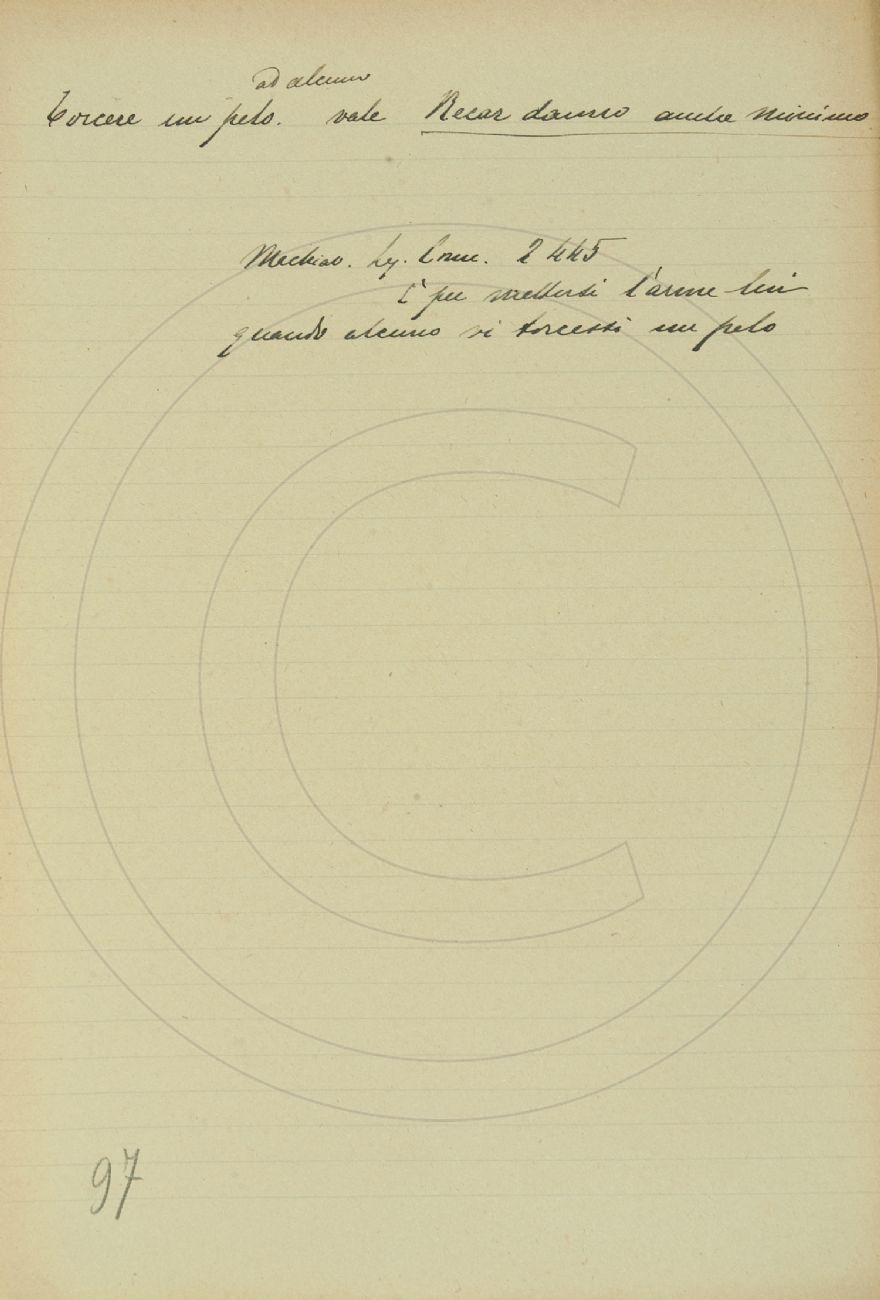 ad alcuno
Torcere un pelo. vale Recar danno anche minimo
Machiav. Leg. Comm. 2 445
È per mettersi l'arme
quando alcuno vi torcessi un pelo
97